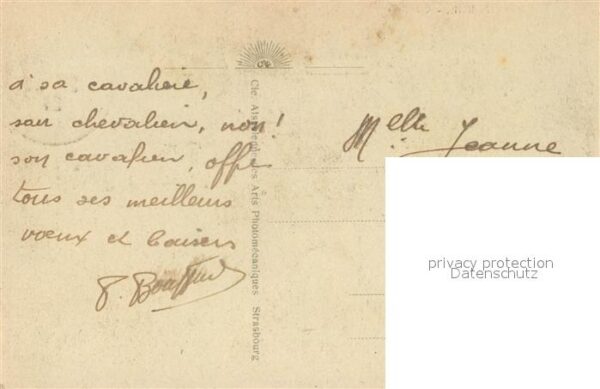 à sa cavalière,
son chevalier, non!
son cavalier, offre
tous ses meilleurs
voeux et baisers
Melle Jeanne
Cie Alsacienne des Arts Photomécaniques Strasbourg
privacy protection
Datenschutz